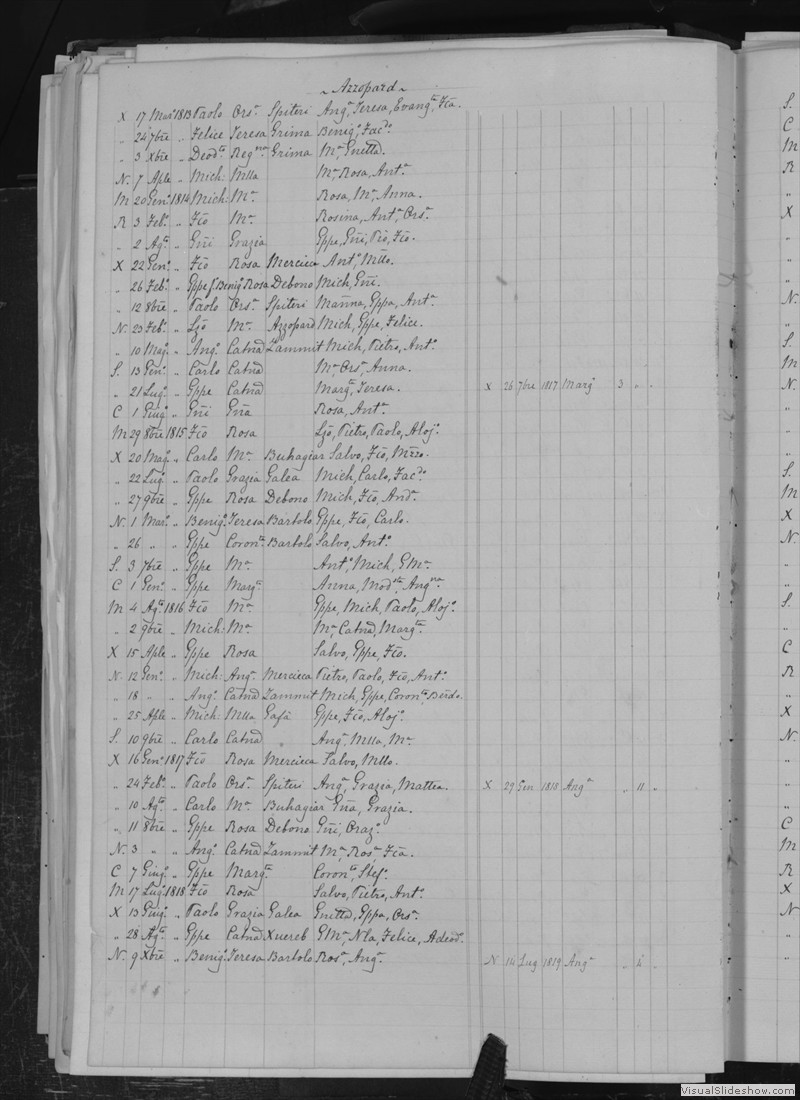 ~ Azzopard ~
X 17 Mar° 1813 Paolo Ors.ª Spiteri Ang.ª, Teresa, Evang.ta, Fca.
„ 24 7bre „ Felice Teresa Grima Benig.°, Fac.do
„ 3 Xbre „ Deod.to Reg.na Grima M.ª, Gnetta.
N. 7 Aple „ Mich: Mlla M.ª Rosa, Ant.ª
M 20 Gen.° 1814 Mich: M.ª Rosa, M.ª, Anna.
R 3 Feb.° „ Fco M.ª Rosina, Ant.ª, Ors.ª
„ 2 Ag.to „ Gñi Grazia Gppe, Gñi, Pio, Fco.
X 22 Gen.° „ Fco Rosa Mercieca Ant.°, Mllo.
„ 26 Feb.° „ Gppe f. Benig.° Rosa Debono Mich, Gñi.
„ 12 8bre „ Paolo Ors.ª Spiteri Mariña, Gppa, Ant.ª
N. 23 Feb.° „ Lzo M.ª Azzopard Mich, Gppe, Felice.
„ 10 Mag.° „ Ang.° Catña Zammit Mich, Pietro, Ant.°
S. 13 Gen.° „ Carlo Catña M.ª Ors.ª, Anna.
„ 21 Lug.° „ Gppe Catña Marg.ta, Teresa. X 26 7bre 1817 Marg.ta 3 „ „
C 1 Giug.° „ Gñi Gña Rosa, Ant.ª
M 29 8bre 1815 Fco Rosa Lzo, Pietro, Paolo, Aloj.°
X 20 Mag.° „ Carlo M.ª Buhagiar Salvo, Fco,
„ 22 Lug.° „ Paolo Grazia Galea Mich, Carlo, Fac.do
„ 27 9bre „ Gppe Rosa Debono Mich, Fco, And.ª
N. 1 Mar.° „ Benig.° Teresa Bartolo Gppe, Fco, Carlo.
„ 26 „ „ Gppe Coron.ta Bartolo Salvo, Ant.°
S. 3 7bre „ Gppe M.ª Ant.°, Mich, GM.ª
C 1 Gen.° „ Gppe Marg.ta Anna, Mod.ta, Ang.na
M 4 Ag.to 1816 Fco M.ª Gppe, Mich, Paolo, Aloj.°
„ 2 9bre „ Mich: M.ª M.ª, Catña, Marg.ta
X 15 Aple „ Gppe Rosa Salvo, Gppe, Fco.
N 12 Gen.° „ Mich: Ang.ª Mercieca Pietro, Paolo, Fco, Ant.°
„ 18 „ „ Ang.° Catña Zammit Mich, Gppe, Coron.to
„ 25 Aple „ Mich: Mlla Gafà Gppe, Fco, Aloj.°
S. 10 9bre „ Carlo Catña „ Ang.ª, Mlla, M.ª
X 16 Gen.° 1817 Fco Rosa Mercieca Salvo, Mllo.
„ 24 Feb.° „ Paolo Ors.ª Spiteri Ang.ª, Grazia, Mattea. X 29 Gen 1818 Ang.ª „ 11 „
„ 10 Ag.to „ Carlo M.ª Buhagiar Gña, Grazia.
„ 11 8bre „ Gppe Rosa Debono Gñi, Oraz.°
N. 3 „ „ Ang.° Catña Zammit M.ª, Ros.ª, Fca.
C 7 Giug.° „ Gppe Marg.ta Coron.ta, Stef.ª
M 17 Lug.° 1818 Fco Rosa Salvo, Pietro, Ant.°
X 13 Giug.° „ Paolo Grazia Galea Gnetta, Gppa, Ors.ª
„ 28 Ag.to „ Gppe Catña Xuereb GM.ª, Nla, Felice, Adeod.°
N. 9 Xbre „ Benig.° Teresa Bartolo Ros.ª, Ang.ª N 14 Lug 1819 Ang.ª „ 4 „
S.
C
M
R
X
N.
S.
M
N.
S.
M
X
N.
S.
C
R
X
N.
C
M
R
X
N
VisualSlideshow.com